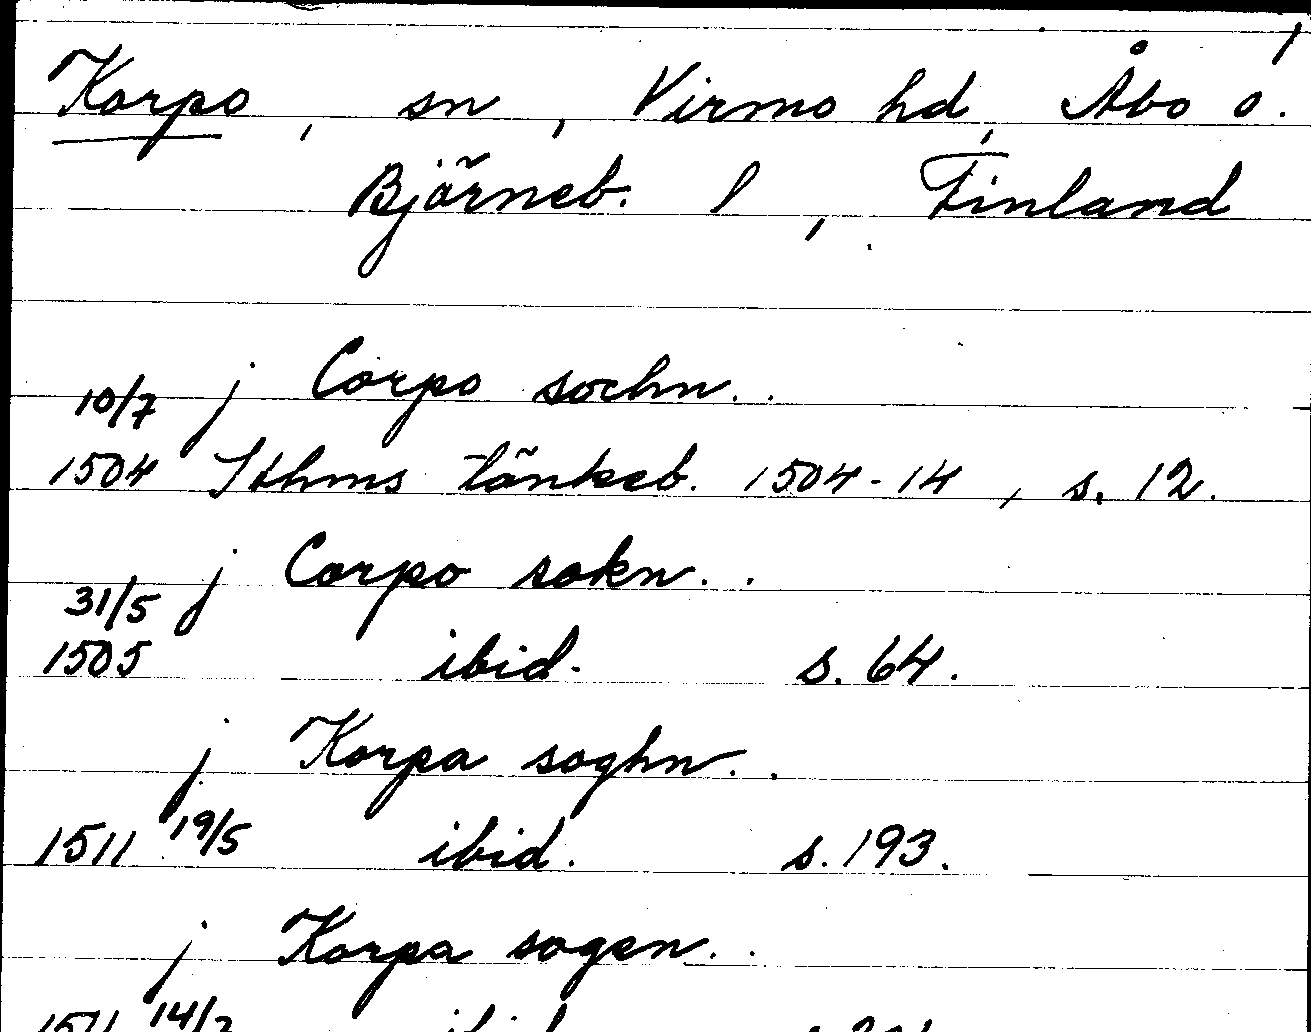 1
Korpo, sn, Virmo hd, Åbo o.
Björneb. l, Finland
10/7 j Corpo sochn..
1504 Sthms tänkeb. 1504-14, s. 12.
31/5 j Corpo sokn..
1505 ibid. s. 64.
j Korpa soghn..
1511 19/5 ibid. s. 193.
j Korpa sogen..
ibid